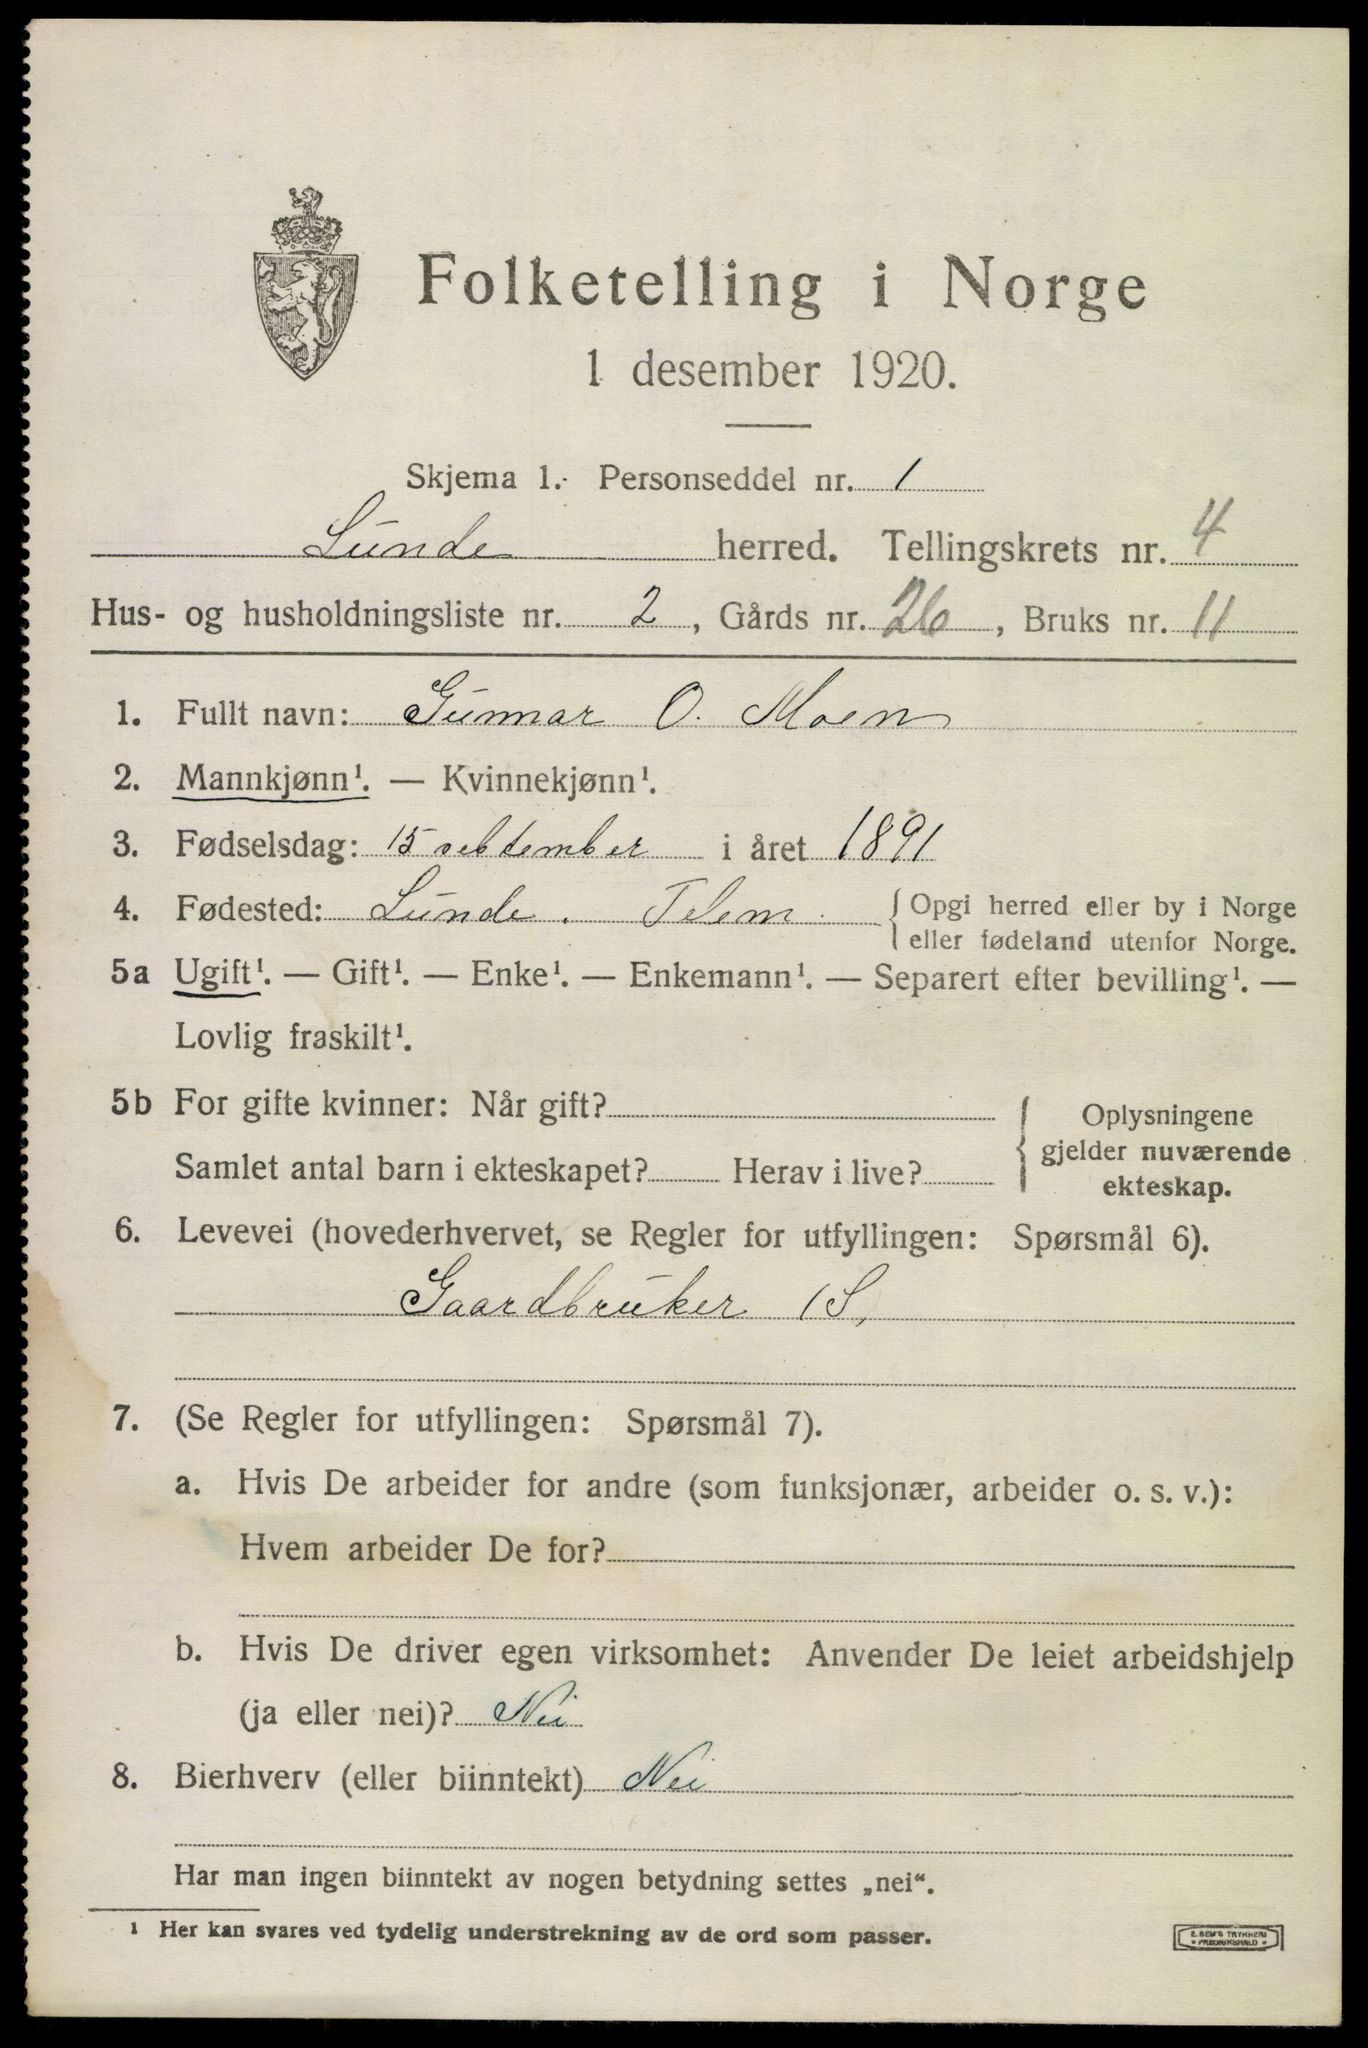 Folketelling i Norge
1 desember 1920.
Skjema 1. Personseddel nr. 1
Lunde herred. Tellingskrets nr. 4
Hus- og husholdningsliste nr. 2, Gårds nr. 26, Bruks nr. 11
1. Fullt navn: Gunnar O. Moen
2. Mannkjønn¹. — Kvinnekjønn¹.
3. Fødselsdag: 15 september i året 1891
4. Fødested: Lunde. Telem. { Opgi herred eller by i Norge
eller fødeland utenfor Norge.
5a Ugift¹. — Gift¹. — Enke¹. — Enkemann¹. — Separert efter bevilling¹. —
Lovlig fraskilt¹.
5b For gifte kvinner: Når gift?
Samlet antal barn i ekteskapet? Herav i live?
{ Oplysningene
gjelder nuværende
ekteskap.
6. Levevei (hovederhvervet, se Regler for utfyllingen: Spørsmål 6).
Gaardbruker (S,
7. (Se Regler for utfyllingen: Spørsmål 7).
a. Hvis De arbeider for andre (som funksjonær, arbeider o. s. v.):
Hvem arbeider De for?
b. Hvis De driver egen virksomhet: Anvender De leiet arbeidshjelp
(ja eller nei)? Nei
8. Bierhverv (eller biinntekt) Nei
Har man ingen biinntekt av nogen betydning settes „nei“.
¹ Her kan svares ved tydelig understrekning av de ord som passer.
E. SEM'S TRYKKERI
FREDRIKSHALD